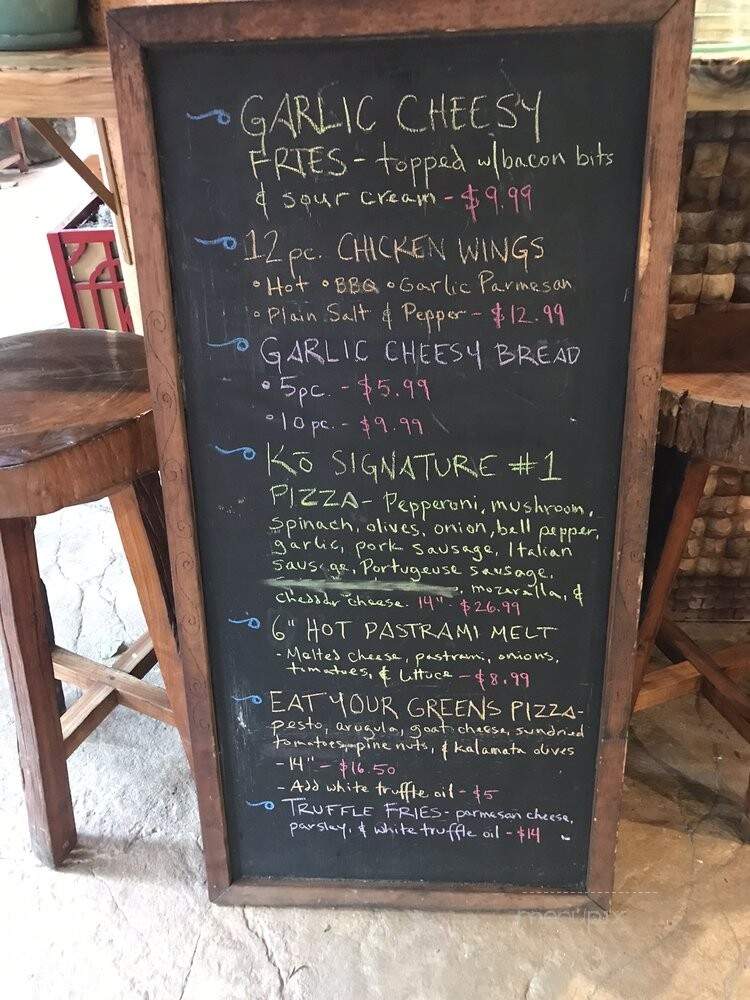 GARLIC CHEESY
FRIES - topped w/bacon bits
& sour cream - $9.99
12 pc. CHICKEN WINGS
• Hot • BBQ • Garlic Parmesan
• Plain Salt & Pepper - $12.99
GARLIC CHEESY BREAD
• 5pc. - $5.99
• 10 pc. - $9.99
Kō SIGNATURE #1
PIZZA - Pepperoni, mushroom,
spinach, olives, onion, bell pepper,
garlic, pork sausage, Italian
sausage, Portugeuse sausage,
, mozarella, &
cheddar cheese. 14" - $26.99
6" HOT PASTRAMI MELT
- Melted cheese, pastrami, onions,
tomatoes, & lettuce - $8.99
EAT YOUR GREENS PIZZA -
pesto, arugula, goat cheese, sundried
tomatoes, pine nuts, & kalamata olives
- 14" - $16.50
- Add white truffle oil - $5
TRUFFLE FRIES - parmesan cheese,
parsley, & white truffle oil - $14